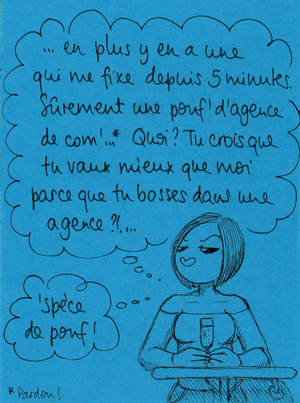 ... en plus y en a une
qui me fixe depuis 5 minutes.
Sûrement une pouf' d'agence
de com'...* Quoi? Tu crois que
tu vaux mieux que moi
parce que tu bosses dans une
agence ?!...
'spèce
de pouf!
* Pardon!